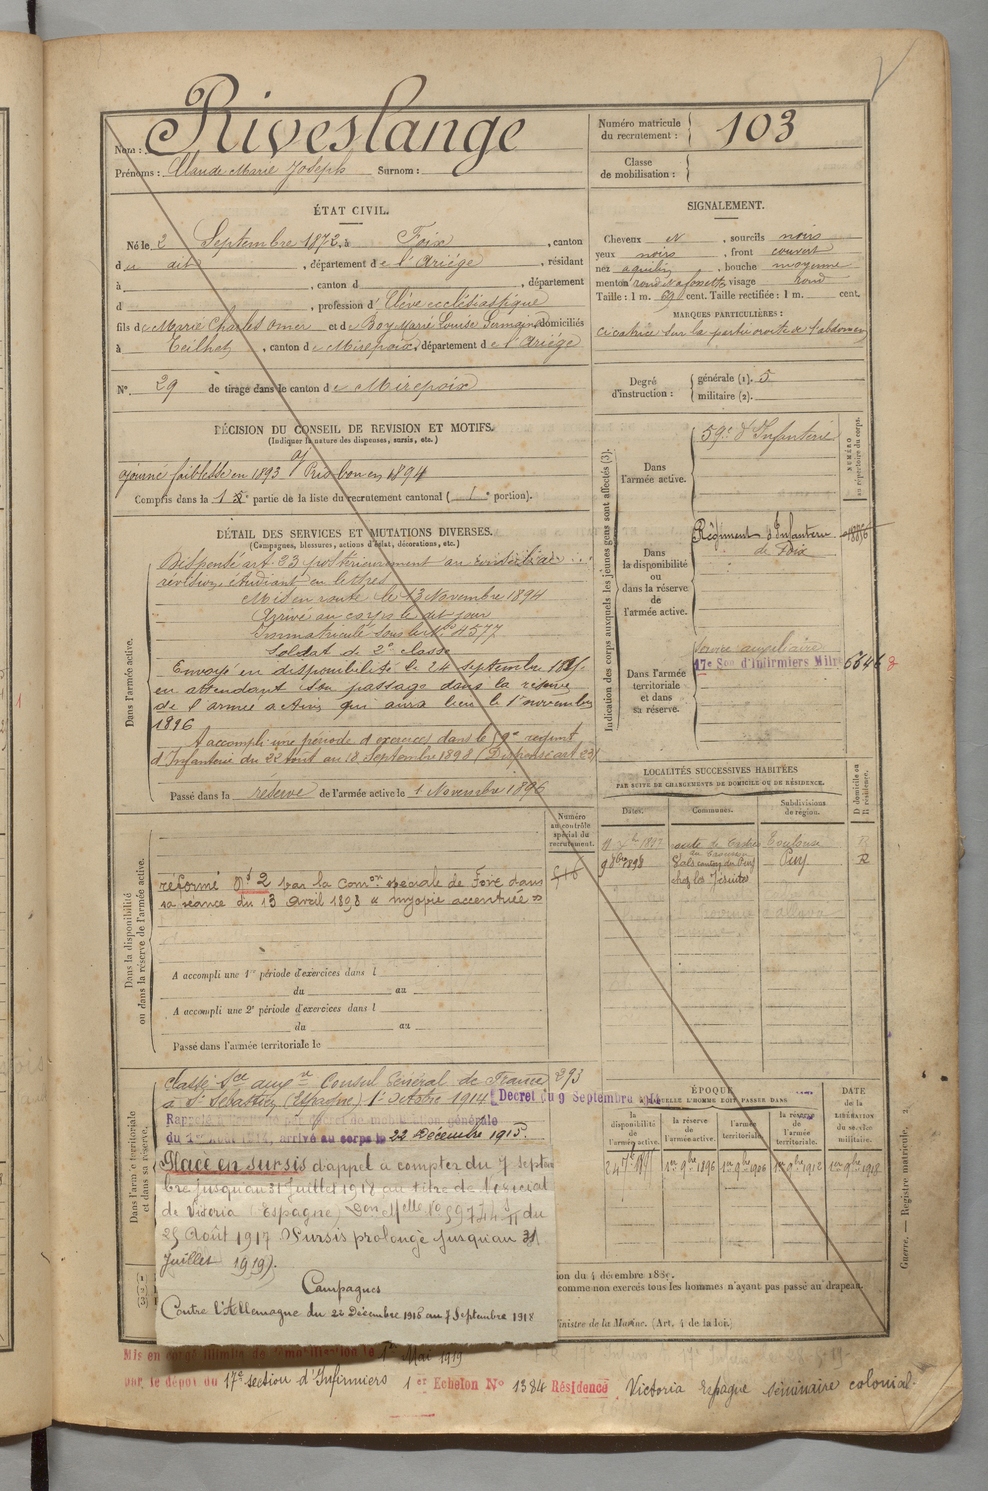 Nom : Riveslange
Prénoms : Claude Marie Joseph Surnom :
Numéro matricule du recrutement : 103
Classe de mobilisation :
ÉTAT CIVIL.
Né le 2 Septembre 1872, à Foix, canton
du dit, département de l'Ariège, résidant
à, canton d, département
d, profession d'Élève ecclésiastique
fils de Marie Charles Omer et de Boy Marie Louise Germaine, domiciliés
à Teilhet, canton de Mirepoix, département de l'Ariège
N° 29 de tirage dans le canton de Mirepoix
SIGNALEMENT.
Cheveux et, sourcils noirs
yeux noirs, front couvert
nez aquilin, bouche moyenne
menton rond à fossette visage rond
Taille : 1 m. 69 cent. Taille rectifiée : 1 m. cent.
MARQUES PARTICULIÈRES :
cicatrice sur la partie droite de l'abdomen
Degré d'instruction : générale (1). 5
militaire (2).
DÉCISION DU CONSEIL DE REVISION ET MOTIFS.
(Indiquer la nature des dispenses, sursis, etc.)
ajourné faiblesse en 1893 Pris bon en 1894
Compris dans la 1 e partie de la liste du recrutement cantonal ( 1 e portion).
DÉTAIL DES SERVICES ET MUTATIONS DIVERSES.
(Campagnes, blessures, actions d'éclat, décorations, etc.)
Dans l'armée active.
Dispensé art. 23 postérieurement au conseil de
revision, étudiant en lettres
Mis en route le 13 Novembre 1894
Arrivé au corps le dit jour
Immatriculé sous le N° 4577
Soldat de 2e classe
Envoyé en disponibilité le 24 septembre
en attendant son passage dans la réserve
de l'armée active qui aura lieu le 1er novembre
1896
A accompli une période d'exercices dans le 9e régiment
d'Infanterie du 22 août au 18 Septembre 1898 (Dispensé art 23)
Passé dans la réserve de l'armée active le 1 Novembre 1896
Indication des corps auxquels les jeunes gens sont affectés (3).
NUMÉRO au répertoire du corps.
Dans l'armée active. 59e d'Infanterie
Dans la disponibilité ou dans la réserve de l'armée active. Régiment d'Infanterie
de Foix
Dans l'armée territoriale et dans sa réserve. Service auxiliaire
17e Son d'Infirmiers Milres
LOCALITÉS SUCCESSIVES HABITÉES
PAR SUITE DE CHANGEMENTS DE DOMICILE OU DE RÉSIDENCE.
Dates. Communes. Subdivisions de région. D domicile ou R résidence.
Toulouse R
9 8bre 1898 Puy R
chez les Jésuites
Numéro au contrôle spécial du recrutement.
Dans la disponibilité ou dans la réserve de l'armée active.
réformé N° 2 par la Comon spéciale de Foix dans
sa séance du 13 avril 1898 « myopie accentuée »
A accompli une 1re période d'exercices dans l
du au
A accompli une 2e période d'exercices dans l
du au
Passé dans l'armée territoriale le
Dans l'armée territoriale et dans sa réserve.
Classé Sce auxre Consul Général de France 293
à St Sébastien (Espagne) 1er octobre 1914 Décret du 9 Septembre 1914
Rappelé
arrivé au corps le 22 Décembre 1915.
Placé en sursis d'appel à compter du 7 septem
bre jusqu'au 31 Juillet 1918 au titre de
de Vitoria (Espagne) du
25 Août 1917 Sursis prolongé jusqu'au 31
Juillet 1919).
Campagnes
Contre l'Allemagne du 22 Décembre 1915 au 7 Septembre 1918
ÉPOQUE
À LAQUELLE L'HOMME DOIT PASSER DANS
la disponibilité de l'armée active. la réserve de l'armée active. l'armée territoriale. la réserve de l'armée territoriale.
DATE de la LIBÉRATION du service militaire.
1er 9bre 1896 1er 9bre 1906 1er 9bre 1912 1er 9bre 1918
Guerre. — Registre matricule. 2.
ion du 4 décembre 1889.
comme non exercés tous les hommes n'ayant pas passé au drapeau.
inistre de la Marine. (Art. 4 de la loi.)
Mis en congé illimité de démobilisation le 1er Mai 1919
par le dépôt du 17e section d'Infirmiers 1er Echelon N° 1384 Résidence Victoria Espagne séminaire colonial.